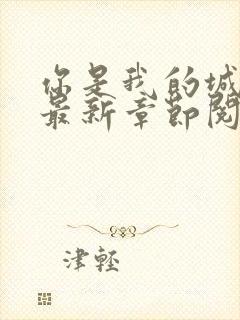 你是我的城
最新章節閱
津輕